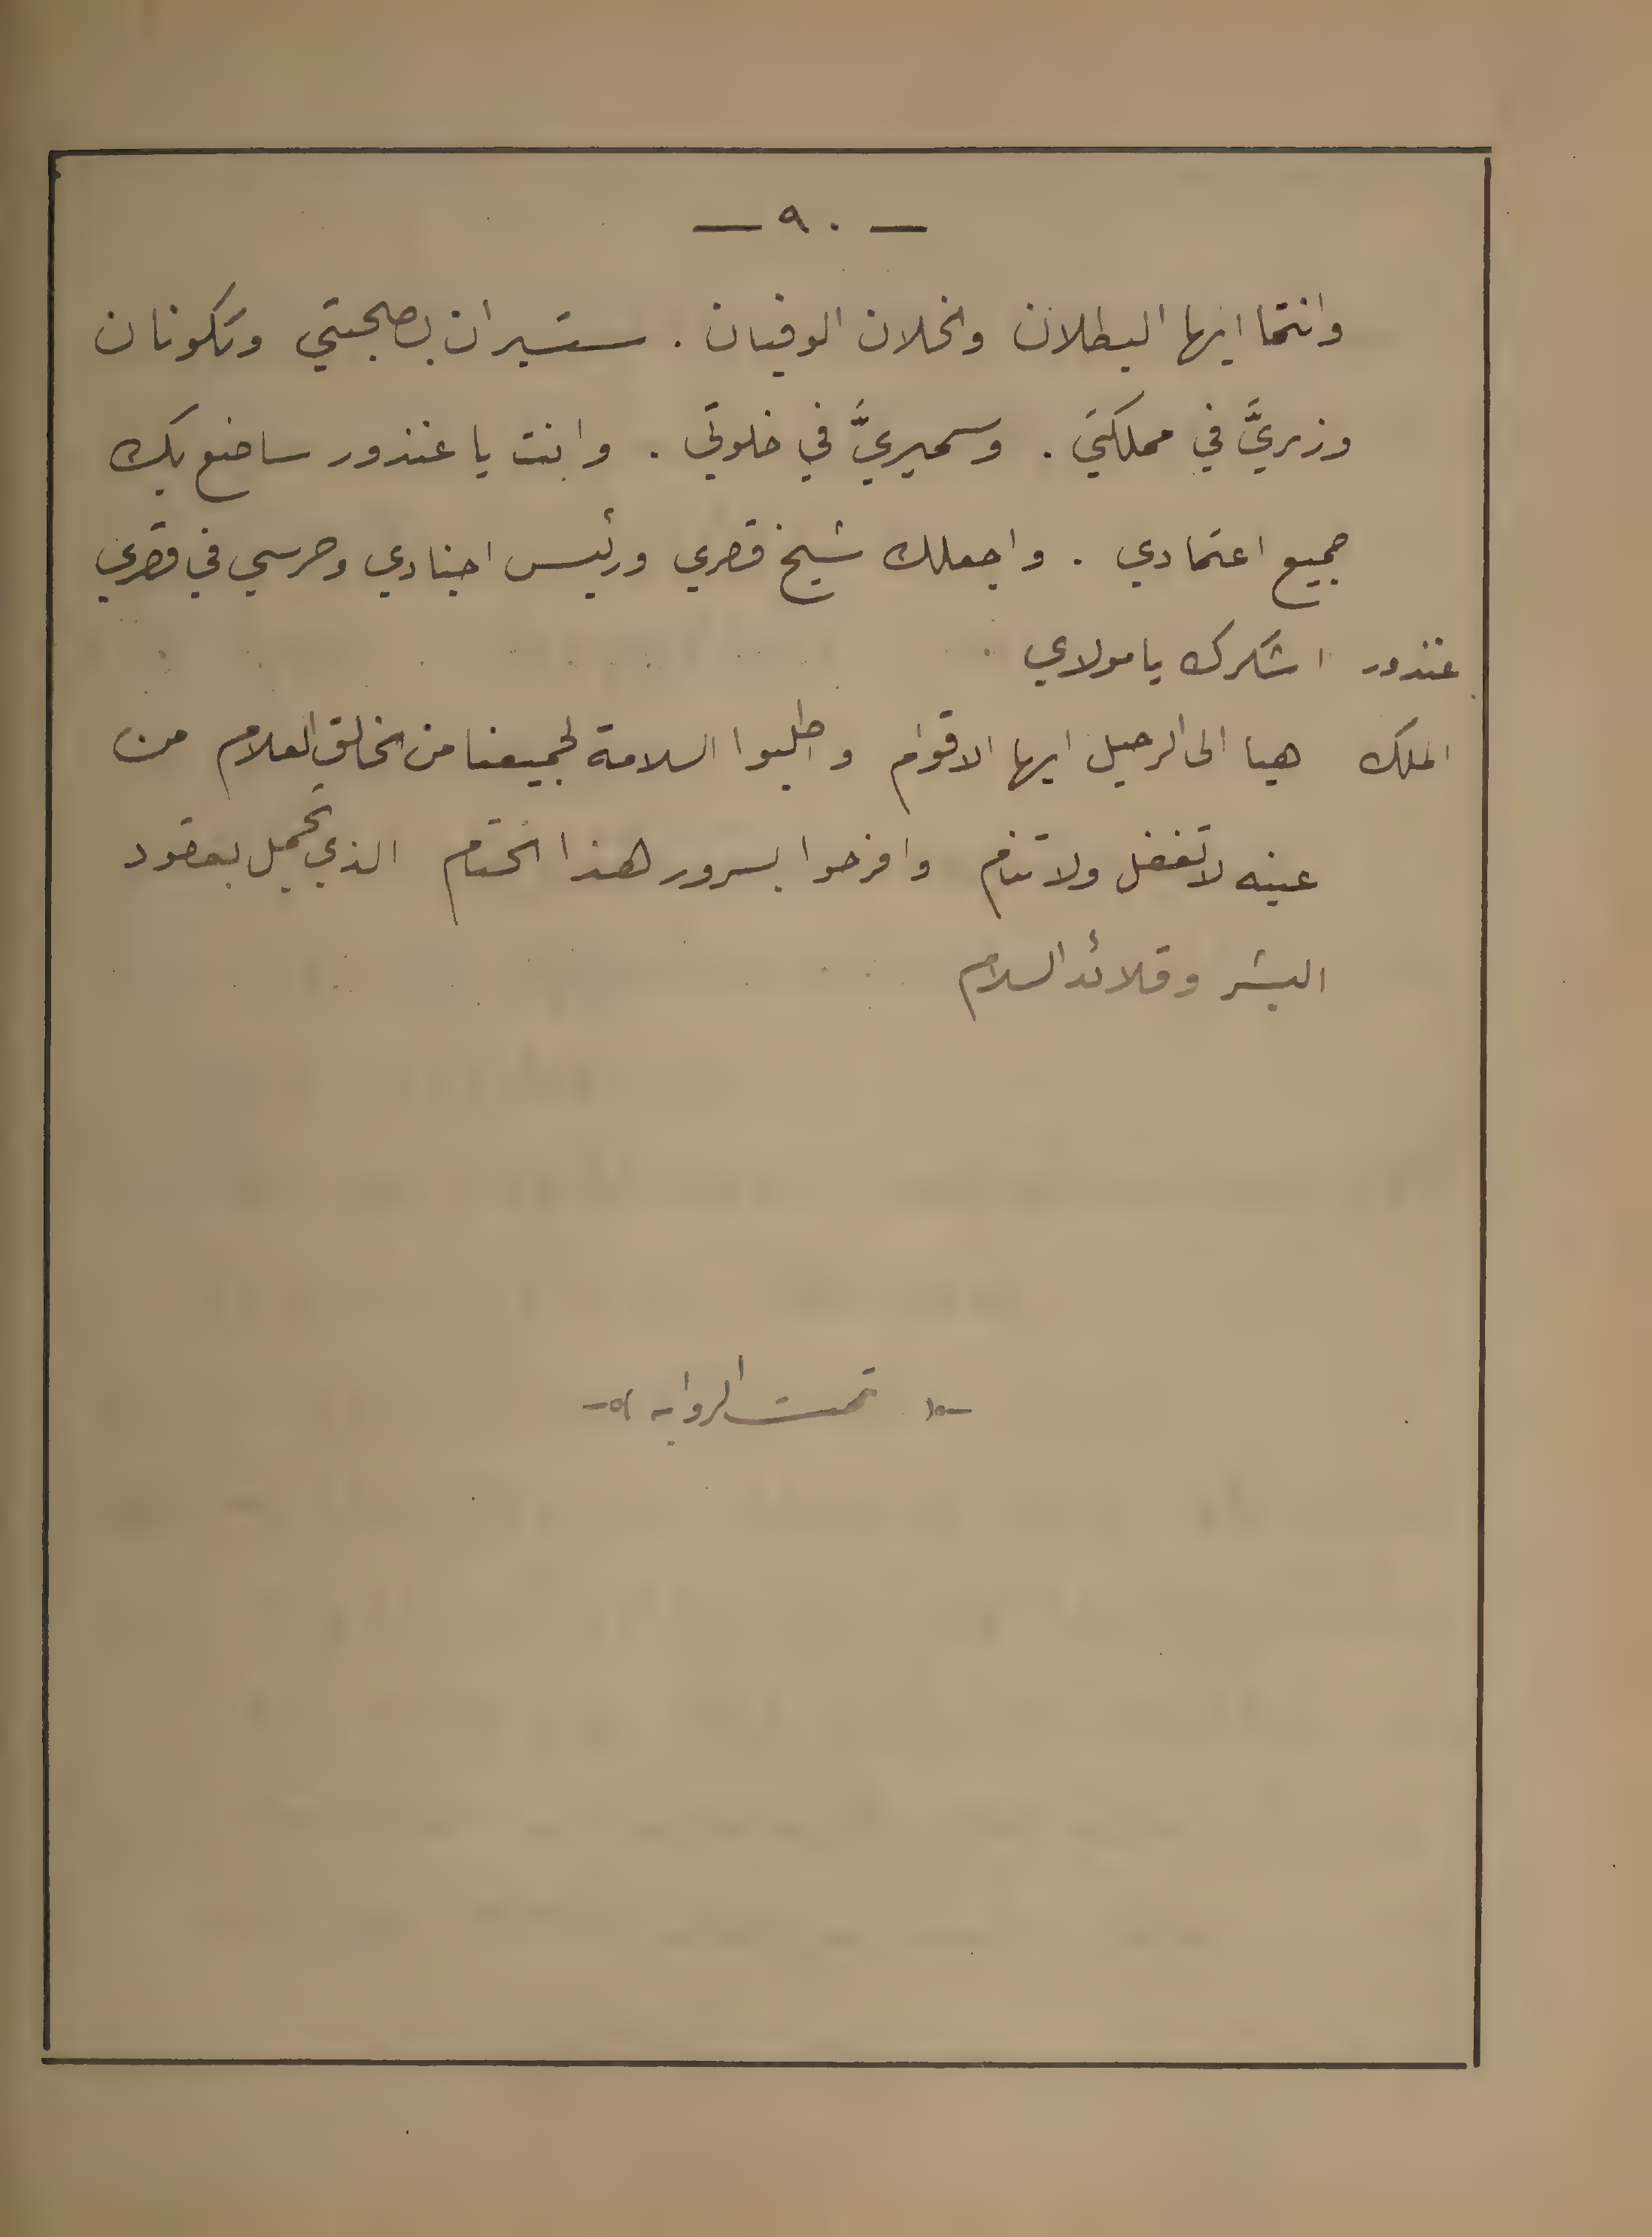 — ٩٠ —
وانتما ايها البطلان والخلان الوفيان . ستسيران بصحبتي وتكونان
وزيريَّ في مملكتي . وسميريَّ في خلوتي . وانت يا غندور ساضع بك
جميع اعتمادي . واجعلك شيخ قصري ورئيس اجنادي وحرسي في قصري
غندور اشكرك يا مولاي
الملك هيا الى الرحيل ايها الاقوام واطلبوا السلامة لجميعنا من الخالق العلام من
عينه لا تغفل ولا تنام وافرحوا بسرور هذا الختام الذي تجمل بعقود
البشر وقلائد السلام
تمت الروايه